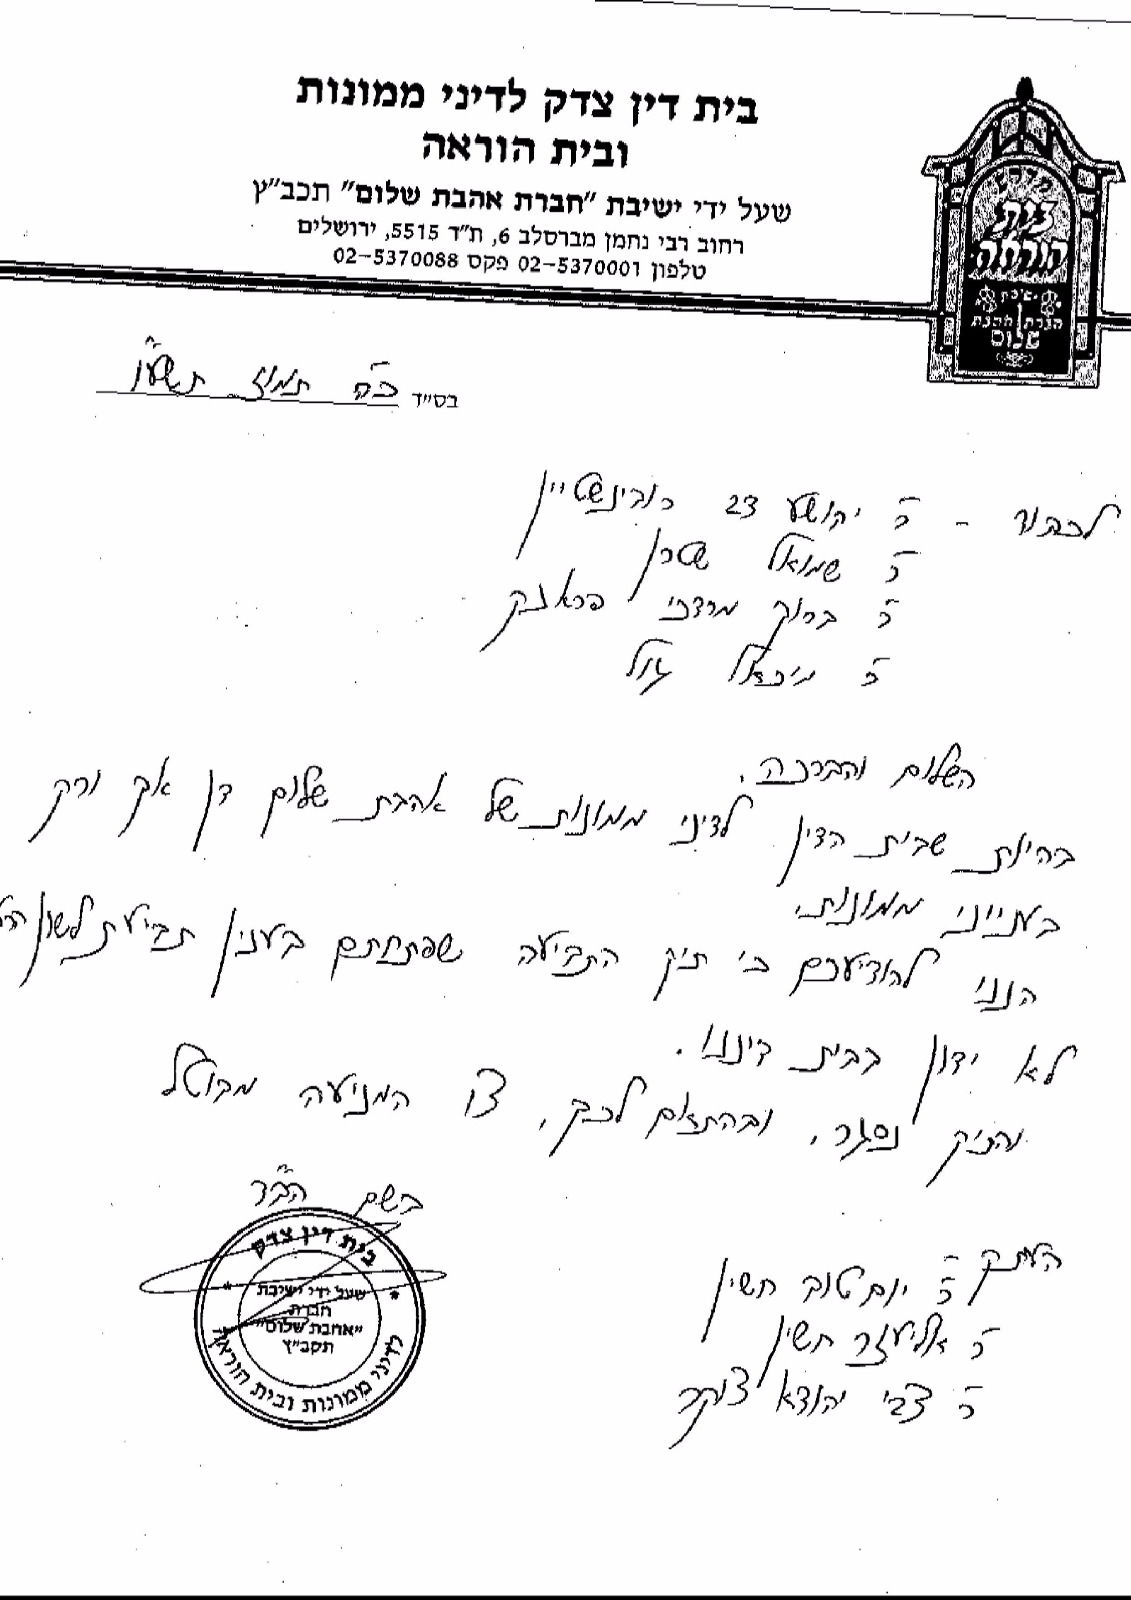 בית דין צדק לדיני ממונות
ובית הוראה
שעל ידי ישיבת "חברת אהבת שלום" תכב"ץ
רחוב רבי נחמן מברסלב 6, ת"ד 5515, ירושלים
טלפון 02-5370001 פקס 02-5370088
ישיבת
חברת אהבת
שלום
בס"ד כ"ה תמוז תשע"ו
לכבוד - ר' יהושע רובינשטיין
ר' שמואל שטרן
ר' ברוך מרדכי פראנק
ר' מיכאל
השלום והברכה,
בהיות שבית הדין לדיני ממונות של אהבת שלום דן אך ורק
בענייני ממונות,
הנני להודיעכם כי תיק התביעה שפתחתם בענין תביעת לשון
לא ידון בבית דיננו.
והתיק נסגר, ובהתאם לכך, צו המניעה מבוטל
בשם הבד"ץ
בית דין צדק
שעל ידי ישיבת
חברת
"אהבת שלום"
תקב"ץ
לדיני ממונות ובית הוראה
העתק
ר' יום טוב חשין
ר' אליעזר חשין
ר' צבי יהודא צוקר